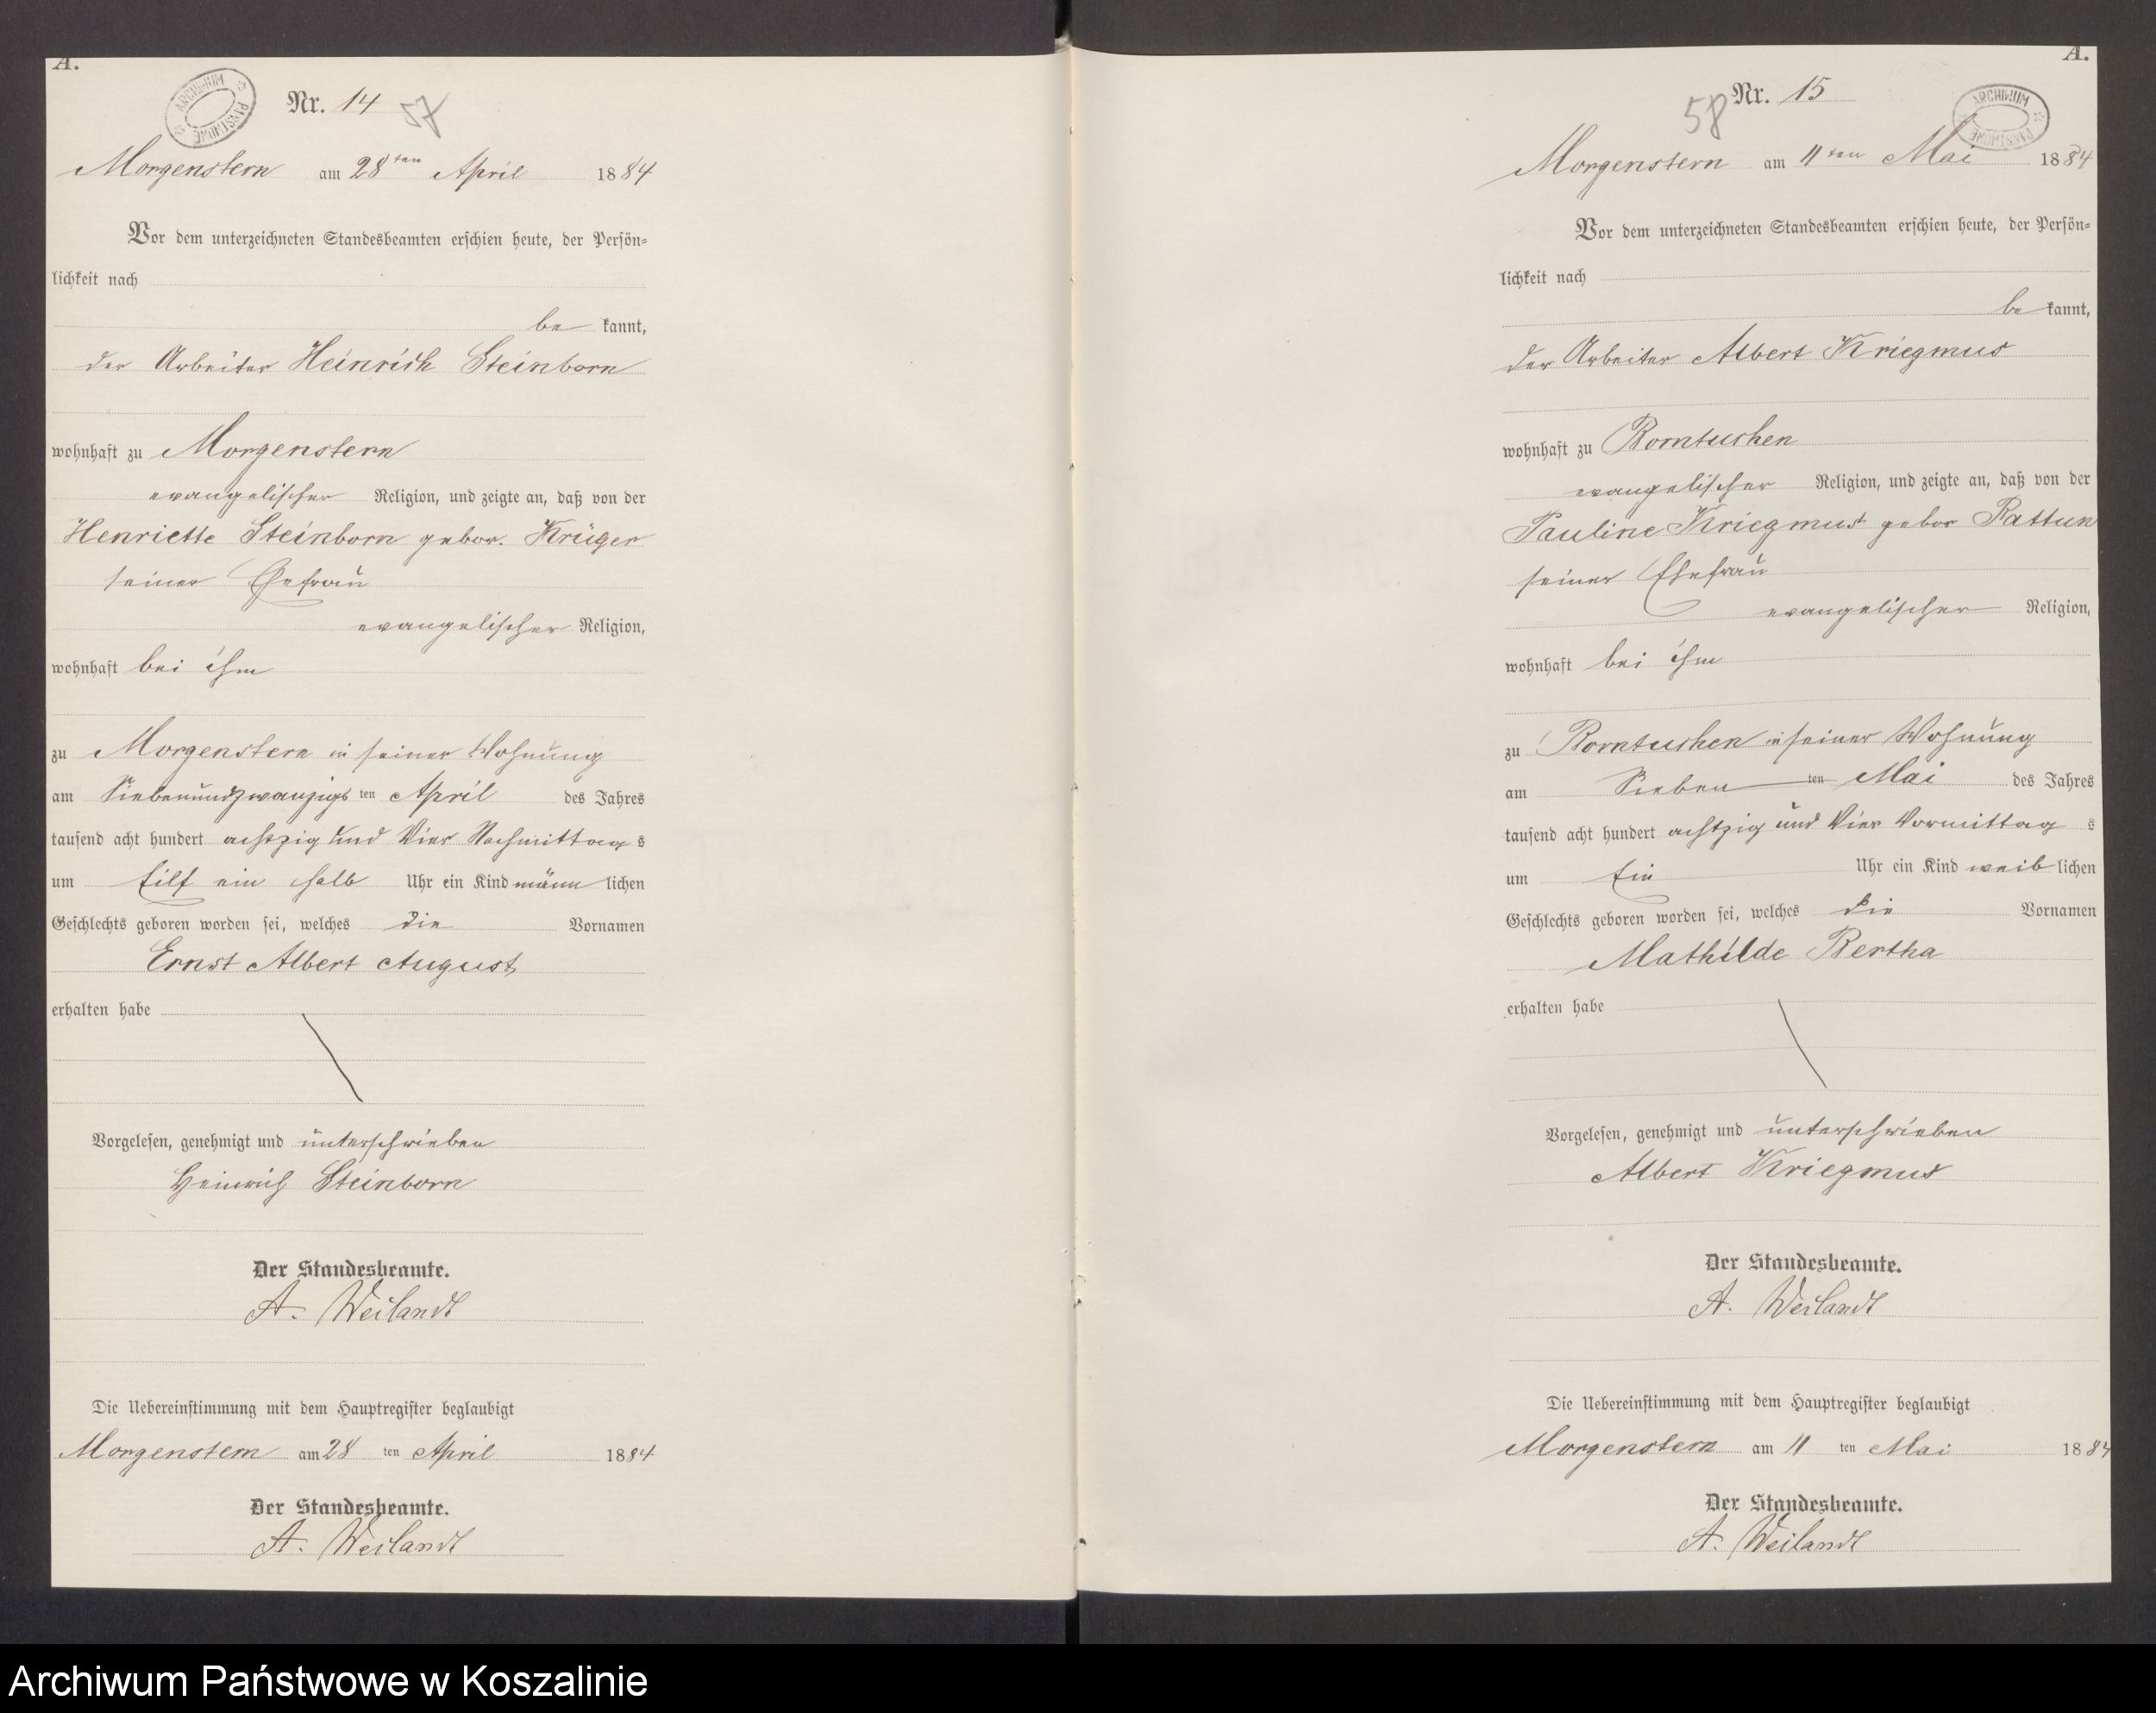 A.
ARCHIWUM PAŃSTWOWE
Nr. 14 57
Morgenstern am 28ten April 1884
Vor dem unterzeichneten Standesbeamten erschien heute, der Persön-
lichkeit nach
be kannt,
der Arbeiter Heinrich Steinborn
wohnhaft zu Morgenstern
evangelischer Religion, und zeigte an, daß von der
Henriette Steinborn gebor. Krüger
seiner Ehefrau
evangelischer Religion,
wohnhaft bei ihm
zu Morgenstern in seiner Wohnung
am Siebenundzwanzigs ten April des Jahres
tausend acht hundert achtzig und Vier Nachmittag s
um Eilf ein halb Uhr ein Kind männ lichen
Geschlechts geboren worden sei, welches die Vornamen
Ernst Albert August
erhalten habe
Vorgelesen, genehmigt und unterschrieben
Heinrich Steinborn
Der Standesbeamte.
A. Weilandt
Die Uebereinstimmung mit dem Hauptregister beglaubigt
Morgenstern am 28 ten April 1884
Der Standesbeamte.
A. Weilandt
A.
58 Nr. 15
ARCHIWUM PAŃSTWOWE
Morgenstern am 11ten Mai 1884
Vor dem unterzeichneten Standesbeamten erschien heute, der Persön-
lichkeit nach
be kannt,
der Arbeiter Albert Kriegmus
wohnhaft zu Borntuchen
evangelischer Religion, und zeigte an, daß von der
Pauline Kriegmus gebor Pattun
seiner Ehefrau
evangelischer Religion,
wohnhaft bei ihm
zu Borntuchen in seiner Wohnung
am Sieben ten Mai des Jahres
tausend acht hundert achtzig und Vier Vormittag s
um Ein Uhr ein Kind weib lichen
Geschlechts geboren worden sei, welches die Vornamen
Mathilde Bertha
erhalten habe
Vorgelesen, genehmigt und unterschrieben
Albert Kriegmus
Der Standesbeamte.
A. Weilandt
Die Uebereinstimmung mit dem Hauptregister beglaubigt
Morgenstern am 11 ten Mai 1884
Der Standesbeamte.
A. Weilandt
Archiwum Państwowe w Koszalinie